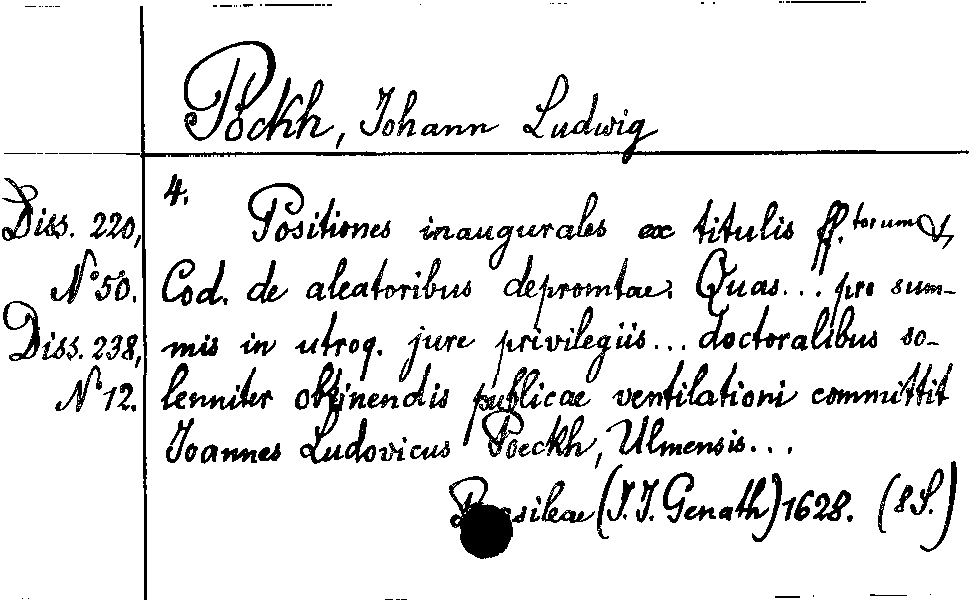 Pöckh, Johann Ludwig
4.
Diss. 220, Positiones inaugurales ex titulis ff.torum &
No 50. Cod. de aleatoribus depromtae: Quas... pro sum-
Diss. 238, mis in utroq. jure privilegiis... doctoralibus so-
No 12. lenniter obtinendis publicae ventilationi committit
Joannes Ludovicus Poeckh, Ulmensis...
Basileae (J. J. Genath) 1628. (8 S.)